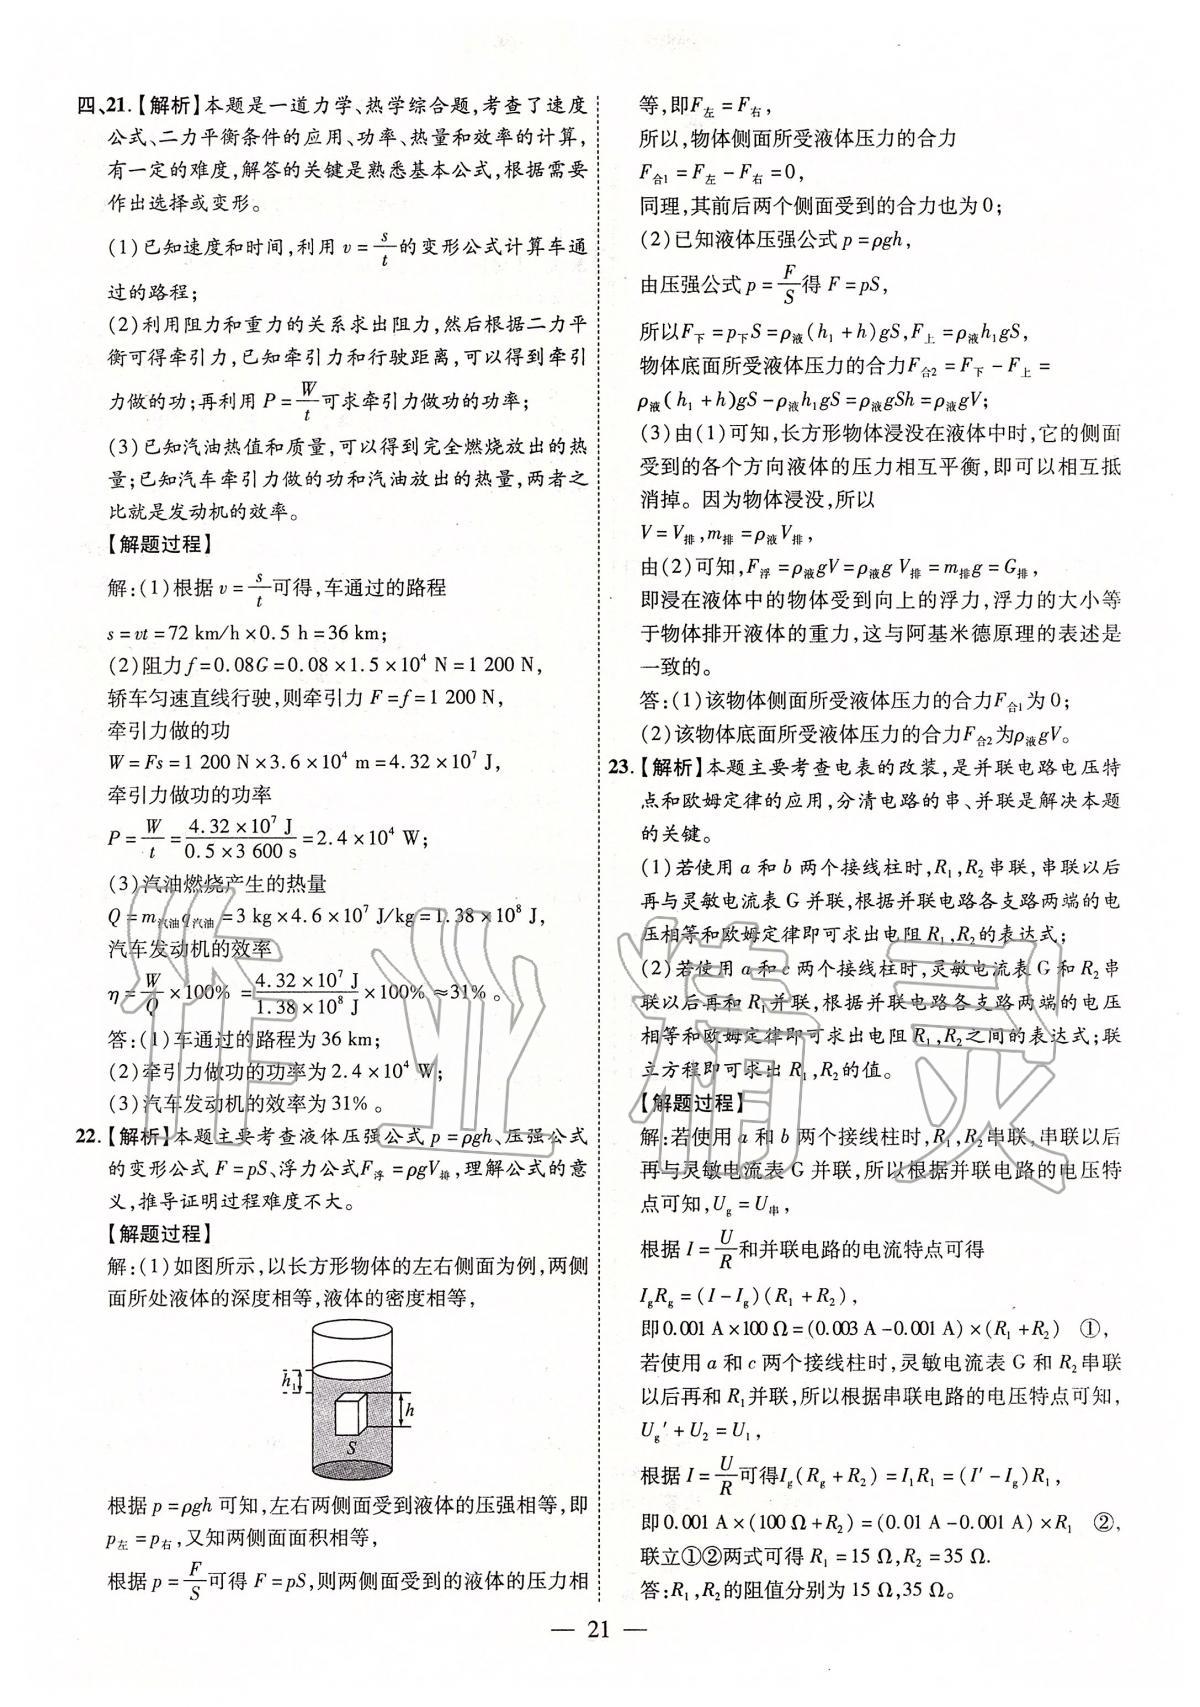 四、21.【解析】本题是一道力学、热学综合题,考查了速度
公式、二力平衡条件的应用、功率、热量和效率的计算,
有一定的难度,解答的关键是熟悉基本公式,根据需要
作出选择或变形。
(1)已知速度和时间,利用 v=s/t的变形公式计算车通
过的路程;
(2)利用阻力和重力的关系求出阻力,然后根据二力平
衡可得牵引力,已知牵引力和行驶距离,可以得到牵引
力做的功;再利用 P=W/t可求牵引力做功的功率;
(3)已知汽油热值和质量,可以得到完全燃烧放出的热
量;已知汽车牵引力做的功和汽油放出的热量,两者之
比就是发动机的效率。
【解题过程】
解:(1)根据 v=s/t可得,车通过的路程
s=vt=72 km/h×0.5 h=36 km;
(2)阻力f=0.08G=0.08×1.5×10⁴ N=1 200 N,
轿车匀速直线行驶,则牵引力 F=f=1 200 N,
牵引力做的功
W=Fs=1 200 N×3.6×10⁴ m=4.32×10⁷ J,
牵引力做功的功率
P=W/t=4.32×10⁷ J/0.5×3 600 s=2.4×10⁴ W;
(3)汽油燃烧产生的热量
Q=m汽油q汽油=3 kg×4.6×10⁷ J/kg=1.38×10⁸ J,
汽车发动机的效率
η=W/Q×100% =4.32×10⁷ J/1.38×10⁸ J×100%≈31%。
答:(1)车通过的路程为36 km;
(2)牵引力做功的功率为2.4×10⁴ W;
(3)汽车发动机的效率为31%。
22.【解析】本题主要考查液体压强公式 p=ρgh、压强公式
的变形公式 F=pS、浮力公式F浮=ρgV排,理解公式的意
义,推导证明过程难度不大。
【解题过程】
解:(1)如图所示,以长方形物体的左右侧面为例,两侧
面所处液体的深度相等,液体的密度相等,
h₁
h
S
根据 p=ρgh 可知,左右两侧面受到液体的压强相等,即
p左=p右,又知两侧面面积相等,
根据 p=F/S可得 F=pS,则两侧面受到的液体的压力相
等,即F左=F右,
所以,物体侧面所受液体压力的合力
F合1=F左-F右=0,
同理,其前后两个侧面受到的合力也为0;
(2)已知液体压强公式 p=ρgh,
由压强公式 p=F/S得 F=pS,
所以F下=p下S=ρ液(h₁+h)gS,F上=ρ液h₁gS,
物体底面所受液体压力的合力F合2=F下-F上=
ρ液(h₁+h)gS-ρ液h₁gS=ρ液gSh=ρ液gV;
(3)由(1)可知,长方形物体浸没在液体中时,它的侧面
受到的各个方向液体的压力相互平衡,即可以相互抵
消掉。因为物体浸没,所以
V=V排,m排=ρ液V排,
由(2)可知,F浮=ρ液gV=ρ液g V排=m排g=G排,
即浸在液体中的物体受到向上的浮力,浮力的大小等
于物体排开液体的重力,这与阿基米德原理的表述是
一致的。
答:(1)该物体侧面所受液体压力的合力F合1为0;
(2)该物体底面所受液体压力的合力F合2为ρ液gV。
23.【解析】本题主要考查电表的改装,是并联电路电压特
点和欧姆定律的应用,分清电路的串、并联是解决本题
的关键。
(1)若使用 a 和 b 两个接线柱时,R₁,R₂串联,串联以后
再与灵敏电流表 G 并联,根据并联电路各支路两端的电
压相等和欧姆定律即可求出电阻 R₁,R₂的表达式;
(2)若使用a和c两个接线柱时,灵敏电流表 G 和 R₂串
联以后再和 R₁并联,根据并联电路各支路两端的电压
相等和欧姆定律即可求出电阻 R₁,R₂之间的表达式;联
立方程即可求出 R₁,R₂的值。
【解题过程】
解:若使用 a 和 b 两个接线柱时,R₁,R₂串联,串联以后
再与灵敏电流表 G 并联,所以根据并联电路的电压特
点可知,Ug=U串,
根据 I=U/R和并联电路的电流特点可得
IgRg=(I-Ig)(R₁+R₂),
即0.001 A×100 Ω=(0.003 A-0.001 A)×(R₁+R₂) ①,
若使用 a 和 c 两个接线柱时,灵敏电流表 G 和 R₂串联
以后再和 R₁并联,所以根据串联电路的电压特点可知,
Ug′+U₂=U₁,
根据 I=U/R可得Ig(Rg+R₂)=I₁R₁=(I′-Ig)R₁,
即0.001 A×(100 Ω+R₂)=(0.01 A-0.001 A)×R₁ ②,
联立①②两式可得 R₁=15 Ω,R₂=35 Ω.
答:R₁,R₂的阻值分别为 15 Ω,35 Ω。
— 21 —
作业精灵